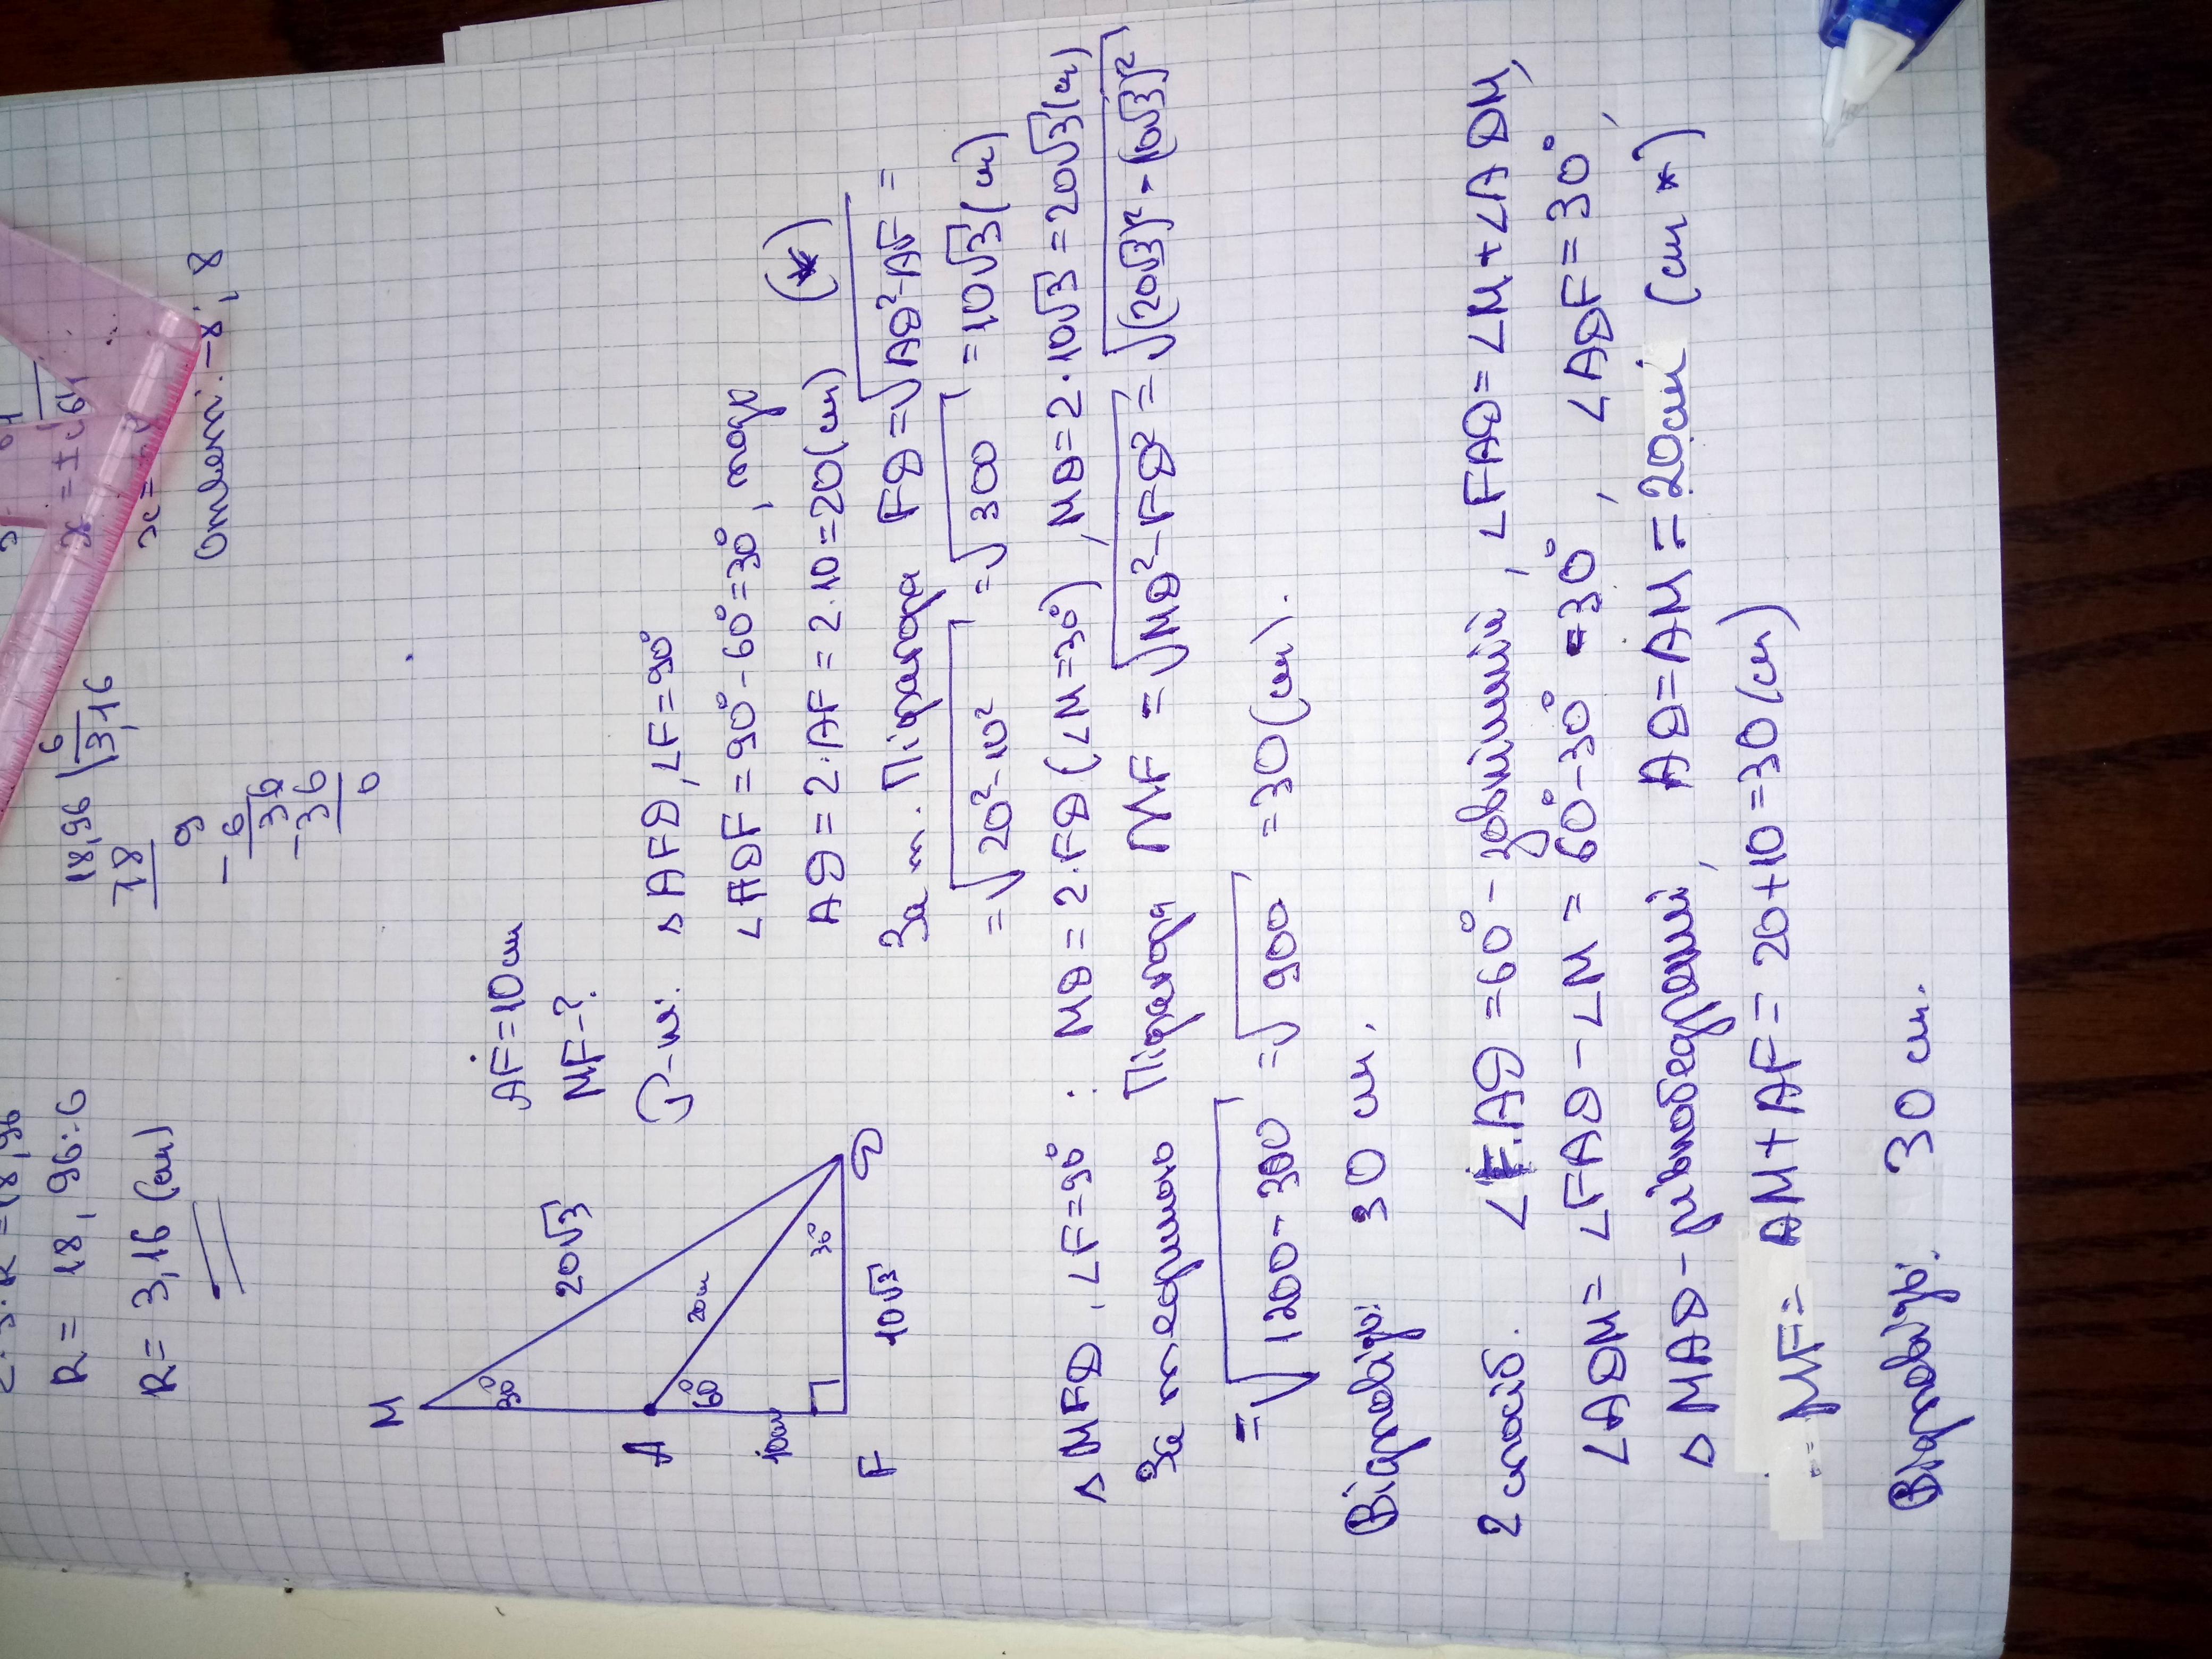 R = 18,96:6
R = 3,16 (см)
18,96 | 6
18 3,16
9
- 6
36
- 36
0
x = ±√64
Ответ: -8; 8
AF=10см
MF-?
M
30°
20√3
A
60°
20см
10см
30°
F
10√3
D
Р-ня: ▵ AFD, ∠F=90°
∠ADF = 90°-60°=30°, тоді
AD = 2·AF = 2·10=20(см) (*)
За т. Піфагора FD=√AD²-AF =
= √20²-10² = √300 = 10√3(см)
▵ MFD, ∠F=90° : MD = 2·FD (∠M=30°), MD=2·10√3=20√3(см)
За теоремою Піфагора MF = √MD²-FD² = √(20√3)²-(10√3)²
= √1200-300 = √900 = 30(см).
Відповідь: 30 см.
2 спосіб. ∠FAD =60° - зовнішній, ∠FAD=∠M+∠ADM,
∠ADM= ∠FAD-∠M = 60°-30° =30°, ∠ADF=30°,
▵ MAD - рівнобедрений, AD=AM=20см (см *)
MF= AM+AF= 20+10=30(см)
Відповідь: 30 см.